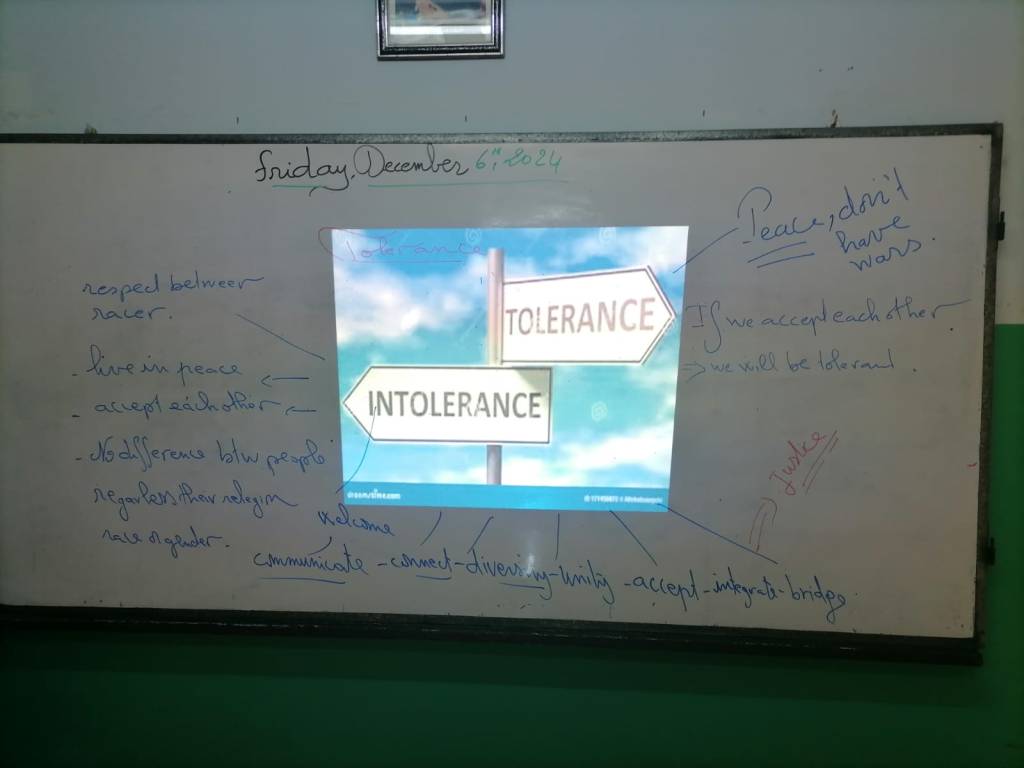 Friday, December 6th, 2024
Tolerance
TOLERANCE
INTOLERANCE
dreamstime.com
respect between
races.
- live in peace
- accept each other
- No difference btw people
regarless their relegion
race or gender.
Peace, don't
have
wars.
If we accept each other
→ we will be tolerant.
Justice
welcome
communicate - connect - diversity - unity - accept - integrate - bridge